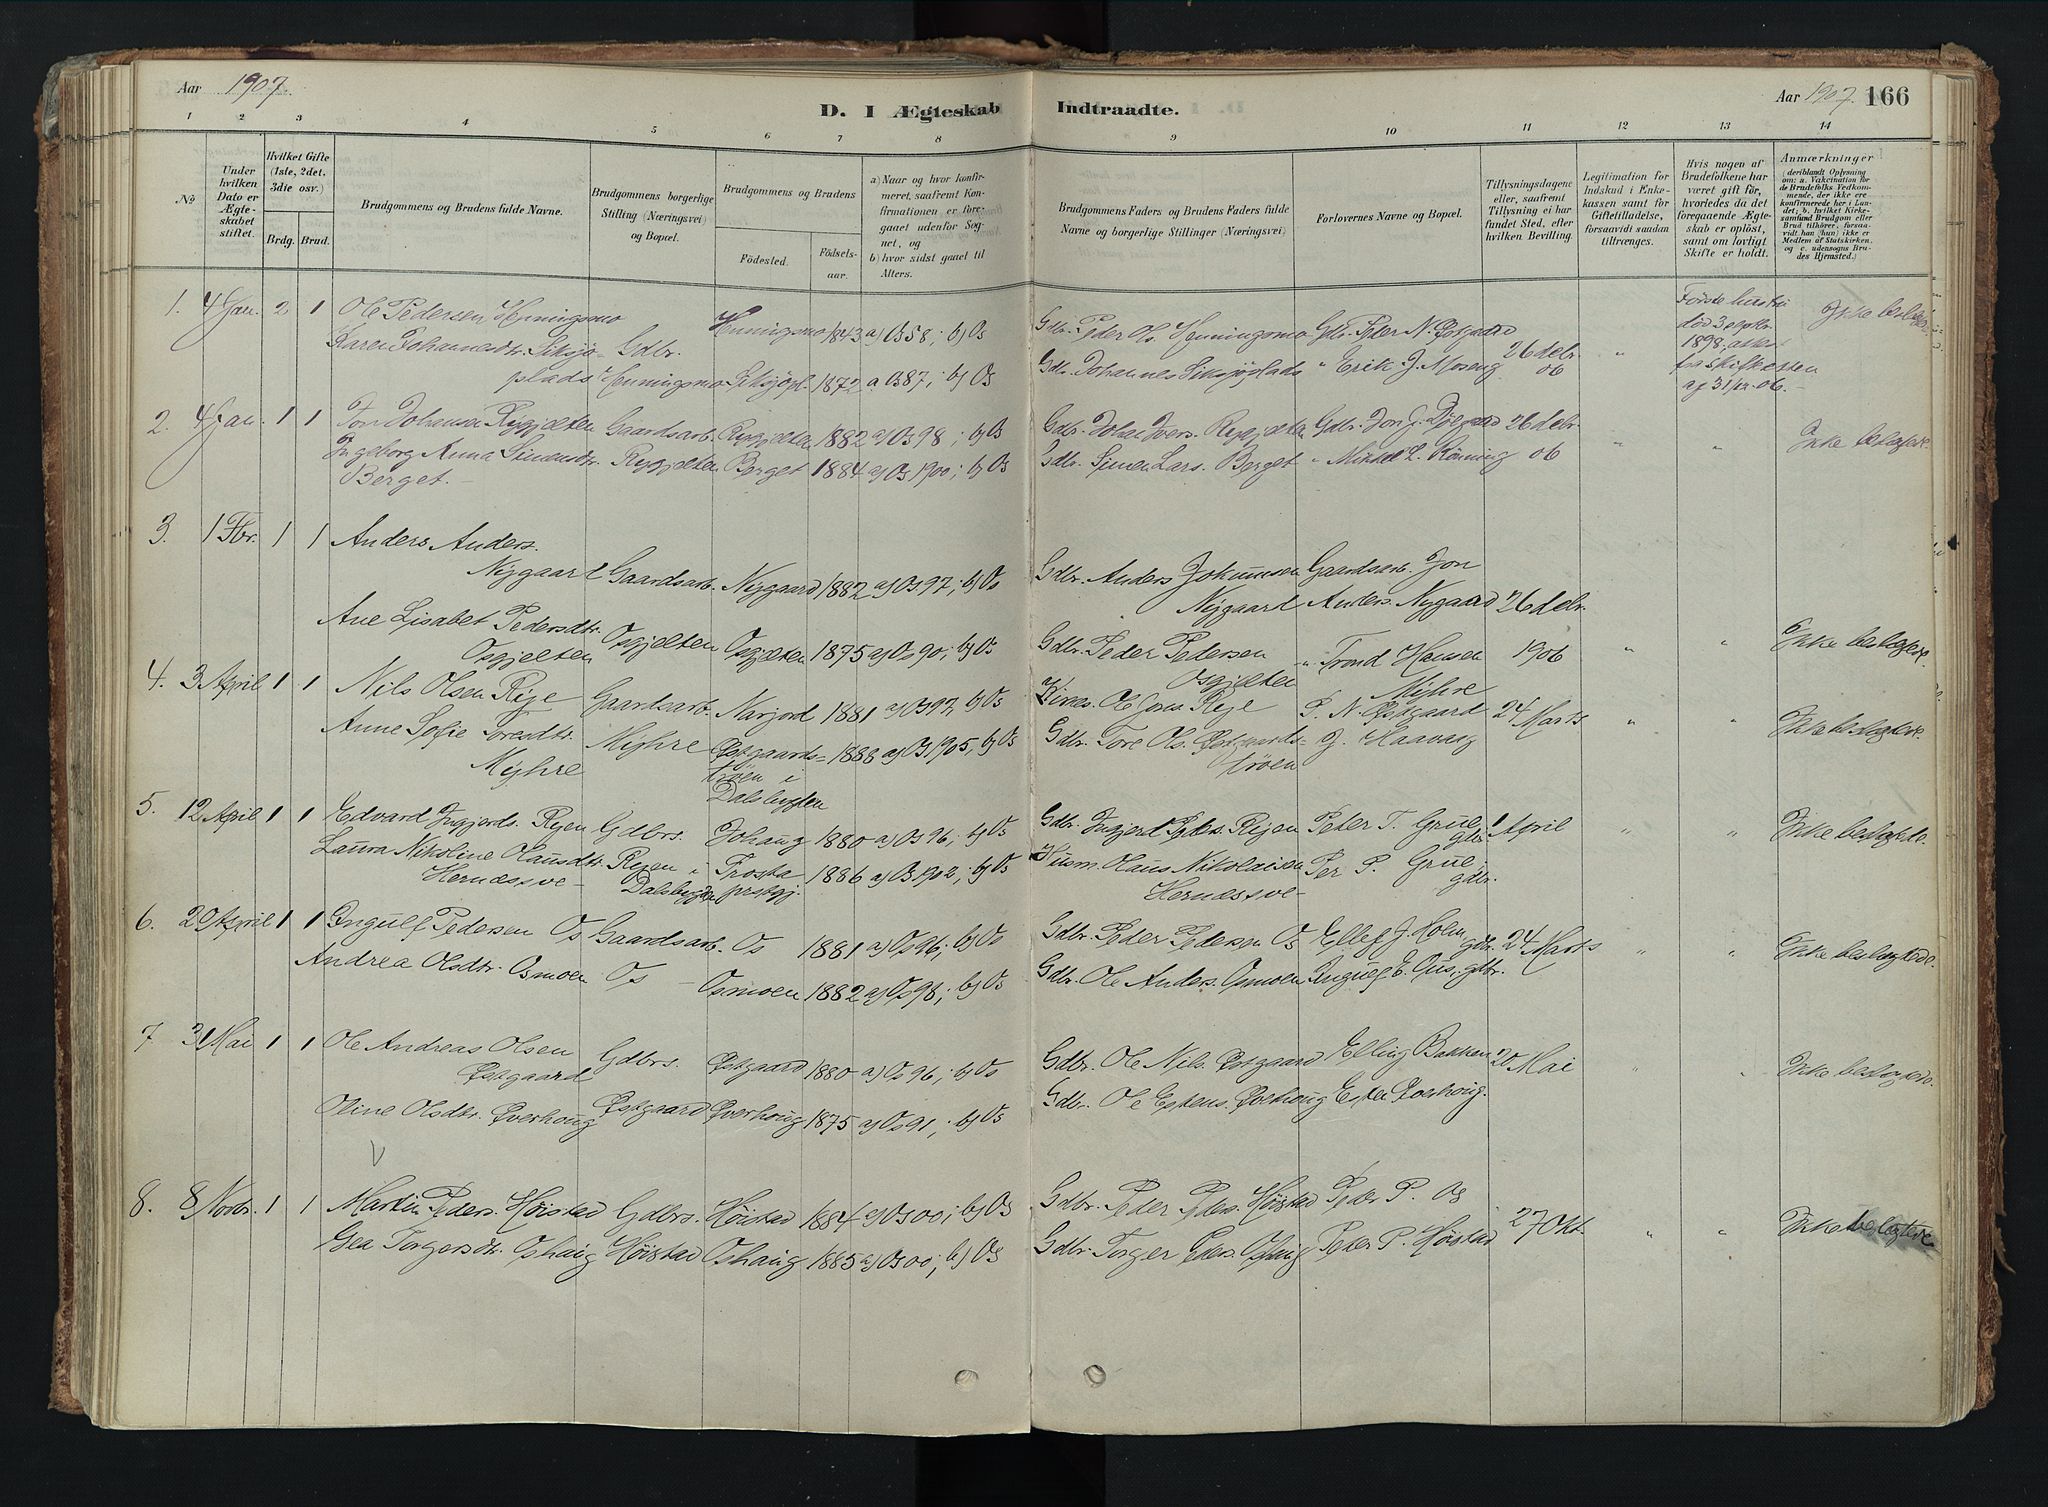 Aar 1907.
D. I Ægteskab Indtraadte.
Aar 1907. 166
1 2 3 4 5 6 7 8 9 10 11 12 13 14
No
Under hvilken Dato er Ægteskabet stiftet.
Hvilket Gifte (1ste, 2det, 3die osv.)
Brdg. Brud.
Brudgommens og Brudens fulde Navne.
Brudgommens borgerlige Stilling (Næringsvei) og Bopæl.
Brudgommens og Brudens
Födested. Födselsaar.
a) Naar og hvor konfirmeret, saafremt Konfirmationen er foregaaet udenfor Sognet, og
b) hvor sidst gaaet til Alters.
Brudgommens Faders og Brudens Faders fulde Navne og borgerlige Stillinger (Næringsvei)
Forlovernes Navne og Bopæl.
Tillysningsdagene eller, saafremt Tillysning ei har fundet Sted, efter hvilken Bevilling.
Legitimation for Indskud i Enkekassen samt for Giftetilladelse, forsaavidt saadan tiltrænges.
Hvis nogen af Brudefolkene har været gift för, hvorledes da det foregaaende Ægteskab er oplöst, samt om lovligt Skifte er holdt.
Anmærkninger (deriblandt Oplysning om: a. Vakcination for de Brudefolks Vedkommende, der ikke ere konfirmerede her i Landet; b. hvilket Kirkesamfund Brudgom eller Brud tilhörer, forsaavidt han (hun) ikke er Medlem af Statskirken, og c. udensogns Brudes Hjemsted.)
1. 4 Jan. 2 1 Ole Pedersen Henningsmo Gdbr. Henningsmo 1843 a) Os 58; b) Os Gdbr. Peder Ols. Henningsmo Gdbr. Peder N. Østgaard 26 debr. 06 " Første hustru død 3 1898 af 31/12 06. Ikke
Karen Johannesdtr. Siksjøplads Henningsmo Siksjøpl. 1872 a Os 87; b) Os Gdbr. Johannes Siksjøplads " Erik J. Moseng
2. 4 Jan. 1 1 Jon Johansen Rygjelten Gaardsarb. Rygjelten 1882 a) Os 98; b) Os Gdbr. Johan Ivers. Rygjelten Gdbr. Jon J. 26 debr. 06 " " Ikke beslægtede.
Ingeborg Anna Simensdtr. Berget. Rygjelten Berget 1884 a) Os 1900; b) Os Gdbr. Simen Lars. Berget " Mikkel L. Rønning
3. 1 Fbr. 1 1 Anders Anders. Nygaard Gaardsarb. Nygaard 1882 a) Os 97; b) Os Gdbr. Anders Johannsen Nygaard Gaardsarb. Jon Anders. Nygaard 26 debr. 1906 " " Ikke beslægtede.
Ane Lisabet Pedersdtr. Osgjelten Osgjelten Osgjelten 1875 a) Os 90; b) Os Gdbr. Peder Pedersen Osgjelten " Trond Hansen Myhre
4. 3 April 1 1 Nils Olsen Rye Gaardsarb. Narjord 1881 a) Os 97, b) Os Ole Jons. Rye P. N. Østgaard 24 Marts " " Ikke beslægtede.
Anne Sofie Toresdtr. Myhre Myhre Østgaardstrøen i Dalsbygden 1888 a) Os 1905, b) Os Gdbr. Tore Ols. Østgaardstrøen J. Haavag
5. 12 April 1 1 Edvard Ingjerds. Ryen Gdbrs. Johaug 1880 a) Os 96; b) Os Gdbr. Ingjerd Peders. Ryen Peter T. Grue gdbr. 1 April " " Ikke beslægtede.
Laura Nikoline Hansdtr. Hernæssve- Ryen i Dalsbygden Frosta prstgj. 1886 a) Os 1902; b) Os Husm. Hans Nikolaisen Hernæssve- Per P. Grue gdbr.
6. 20 April 1 1 Ingulf Pedersen Os Gaardsarb. Os 1881 a) Os 96; b) Os Gdbr. Peder Pedersen Os Ellef J. Holm gdbr. 24 Marts " " Ikke beslægtede.
Andrea Olsdtr. Osmoen Os Osmoen 1882 a) Os 98; b) Os Gdbr. Ole Anders. Osmoen Ingulf E. Aus, gdbr.
7. 31 Mai 1 1 Ole Andreas Olsen Østgaard Gdbrs. Østgaard 1880 a) Os 96; b) Os Gdbr. Ole Nils. Østgaard Elling Bakken 20 Mai " " Ikke beslægtede.
Oline Olsdtr. Øverhoug Østgaard Øverhoug 1875 a) Os 91; b) Os Gdbr. Ole Estens. Øverhoug Esten Øverhoug.
8. 8 Novbr. 1 1 Martin Peders. Høistad Gdbrs. Høistad 1884 a) Os 00; b) Os Gdbr. Peder Peders. Høistad Peder P. Os 27 Okt. " " Ikke beslægtede
Gea Torgersdtr. Oshaug Høistad Oshaug 1885 a) Os 00; b) Os Gdbr. Torger Peders. Oshaug Peter P. Høistad